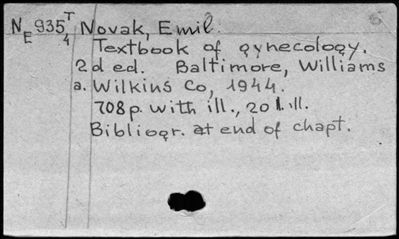 N E 935 T 4 Novak, Emil.
Textbook of gynecology.
2d ed. Baltimore, Williams
a. Wilkins Co, 1944.
708 p. with ill., 20 l. ill.
Bibliogr. at end of chapt.